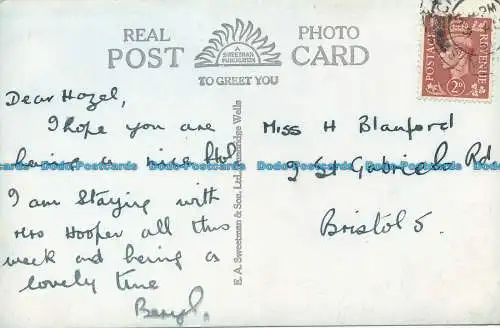 REAL PHOTO
POST CARD
A SWEETMAN PUBLICATION
TO GREET YOU
POSTAGE REVENUE
2D
PM
Dear Hazel,
I hope you are
having a nice Hol
I am staying with
Mrs Hooper all this
week and having a
lovely time
Beryl.
E. A. Sweetman & Son. Ltd. Tunbridge Wells
Miss H Blanford
9 St Gabriels Rd
Bristol 5.
Todocoleccion Postcards Todocoleccion Postcards Todocoleccion Postcards Todocoleccion Postcards